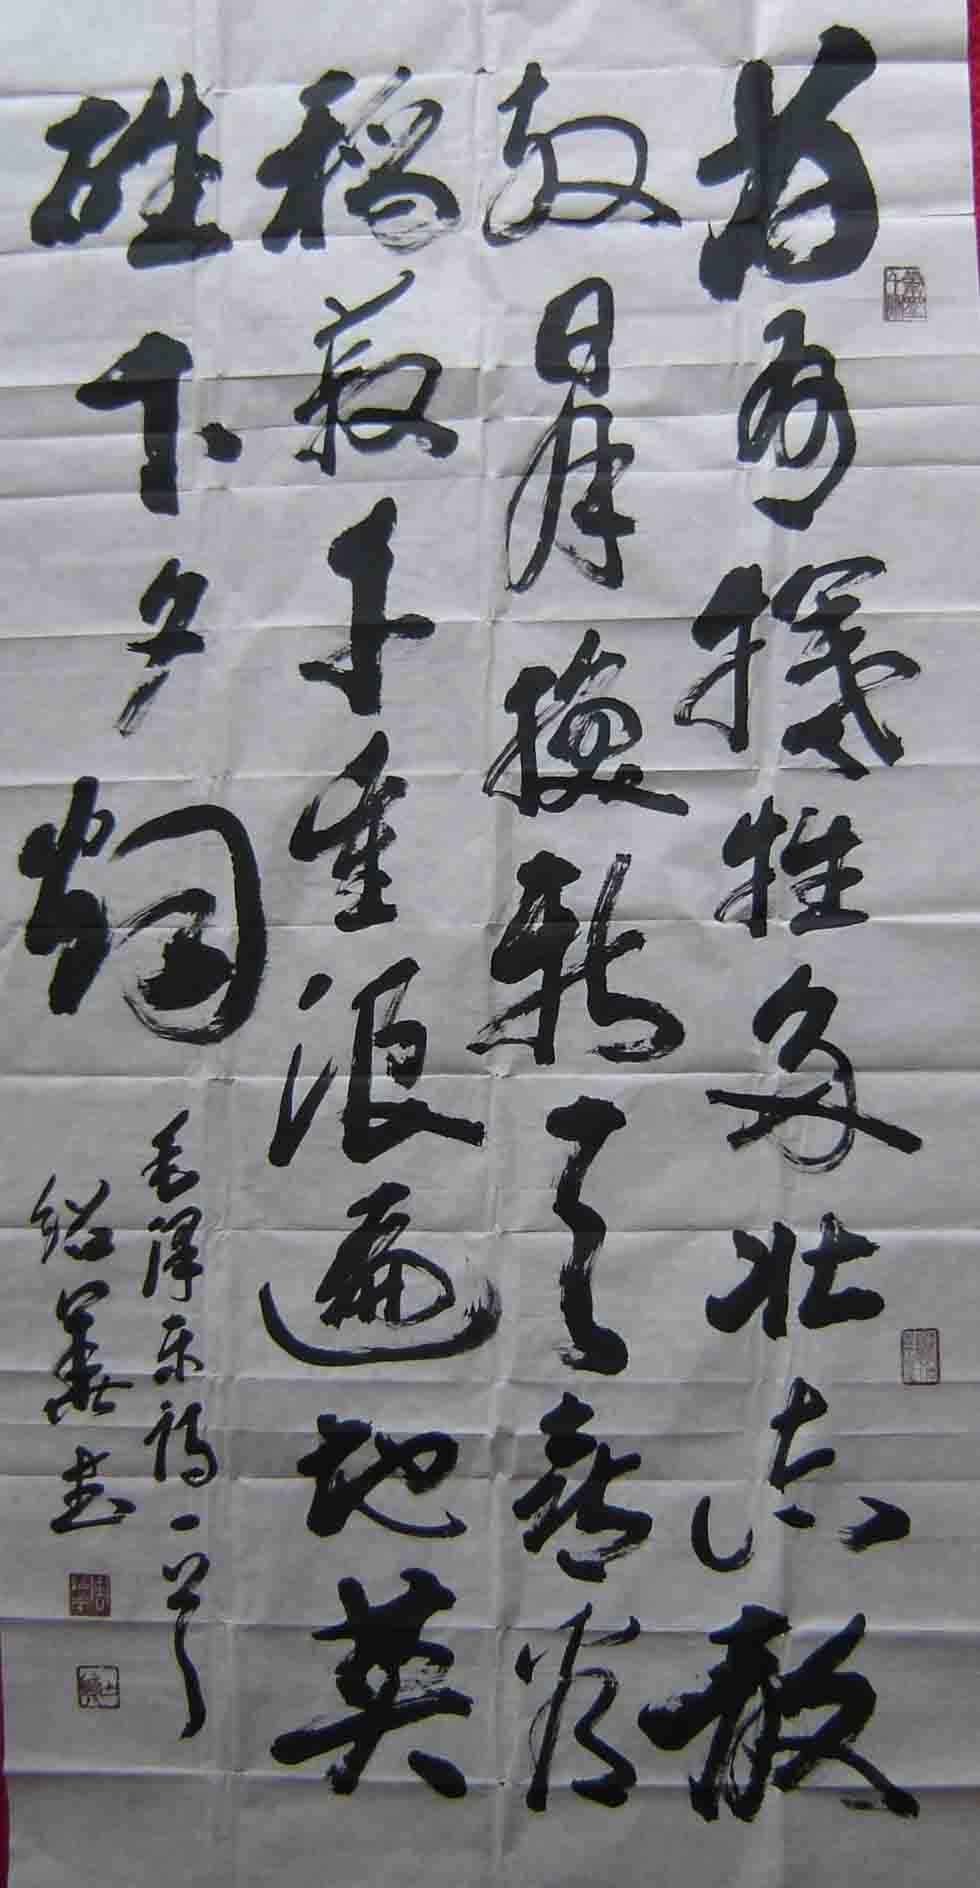 为有犧牲多壮志敢
教日月換新天喜看
稻菽千重浪遍地英
雄下夕烟
毛泽东诗一首
绍 书